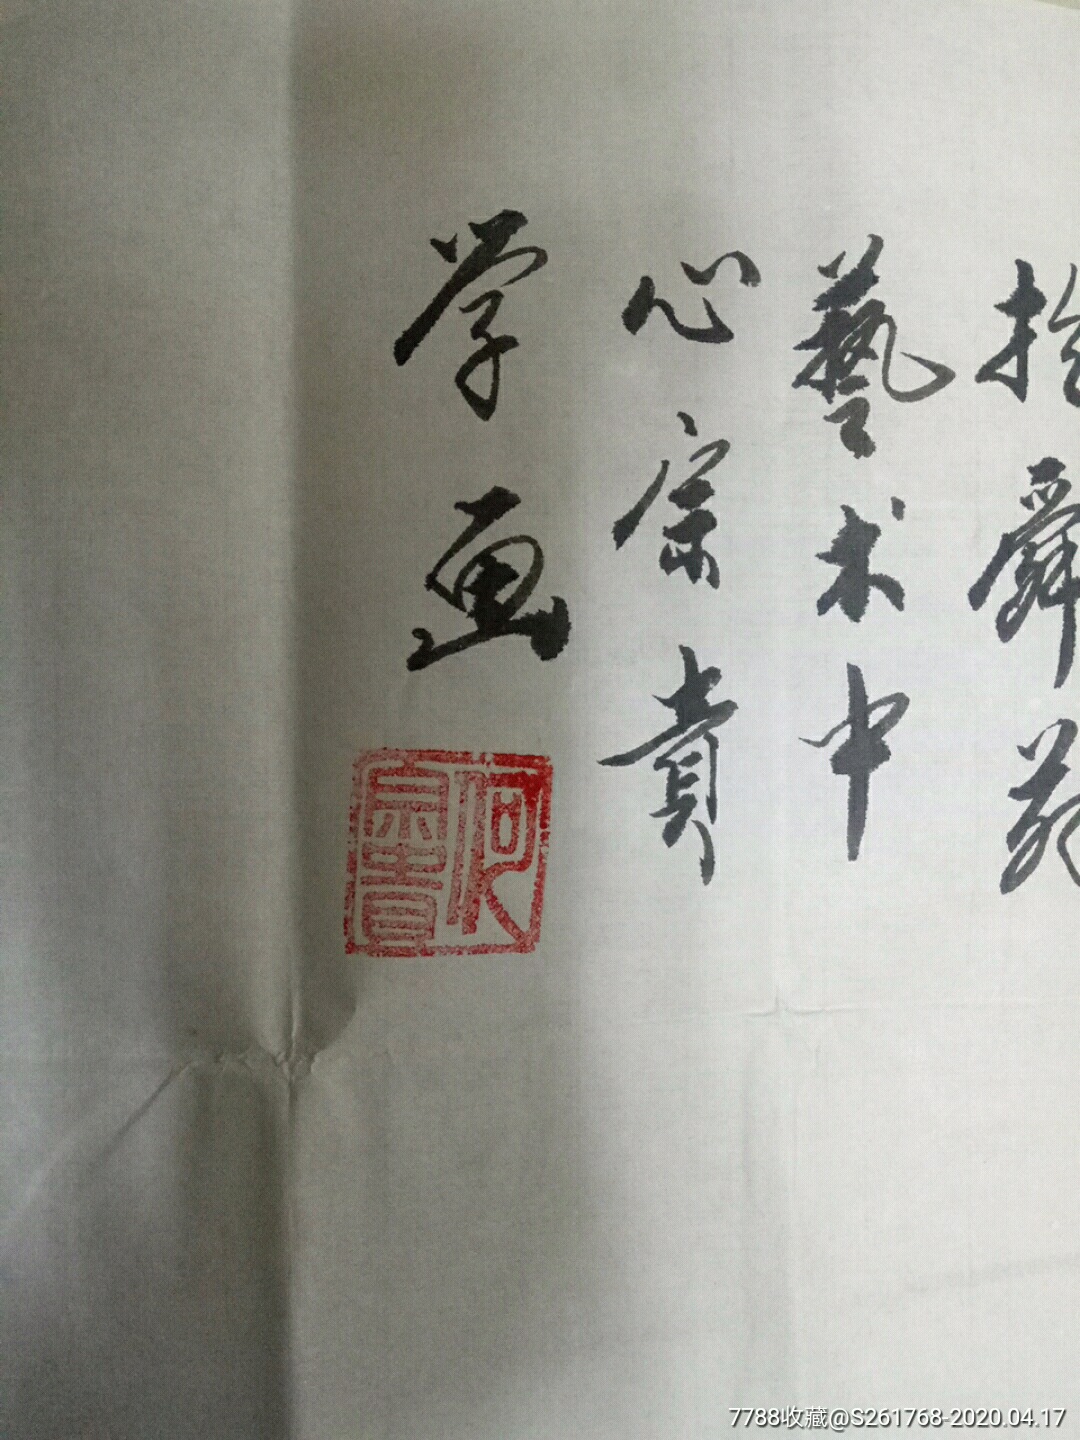 舜
藝术中
心宗责
学画
何宗责
7788收藏@S261768-2020.04.17